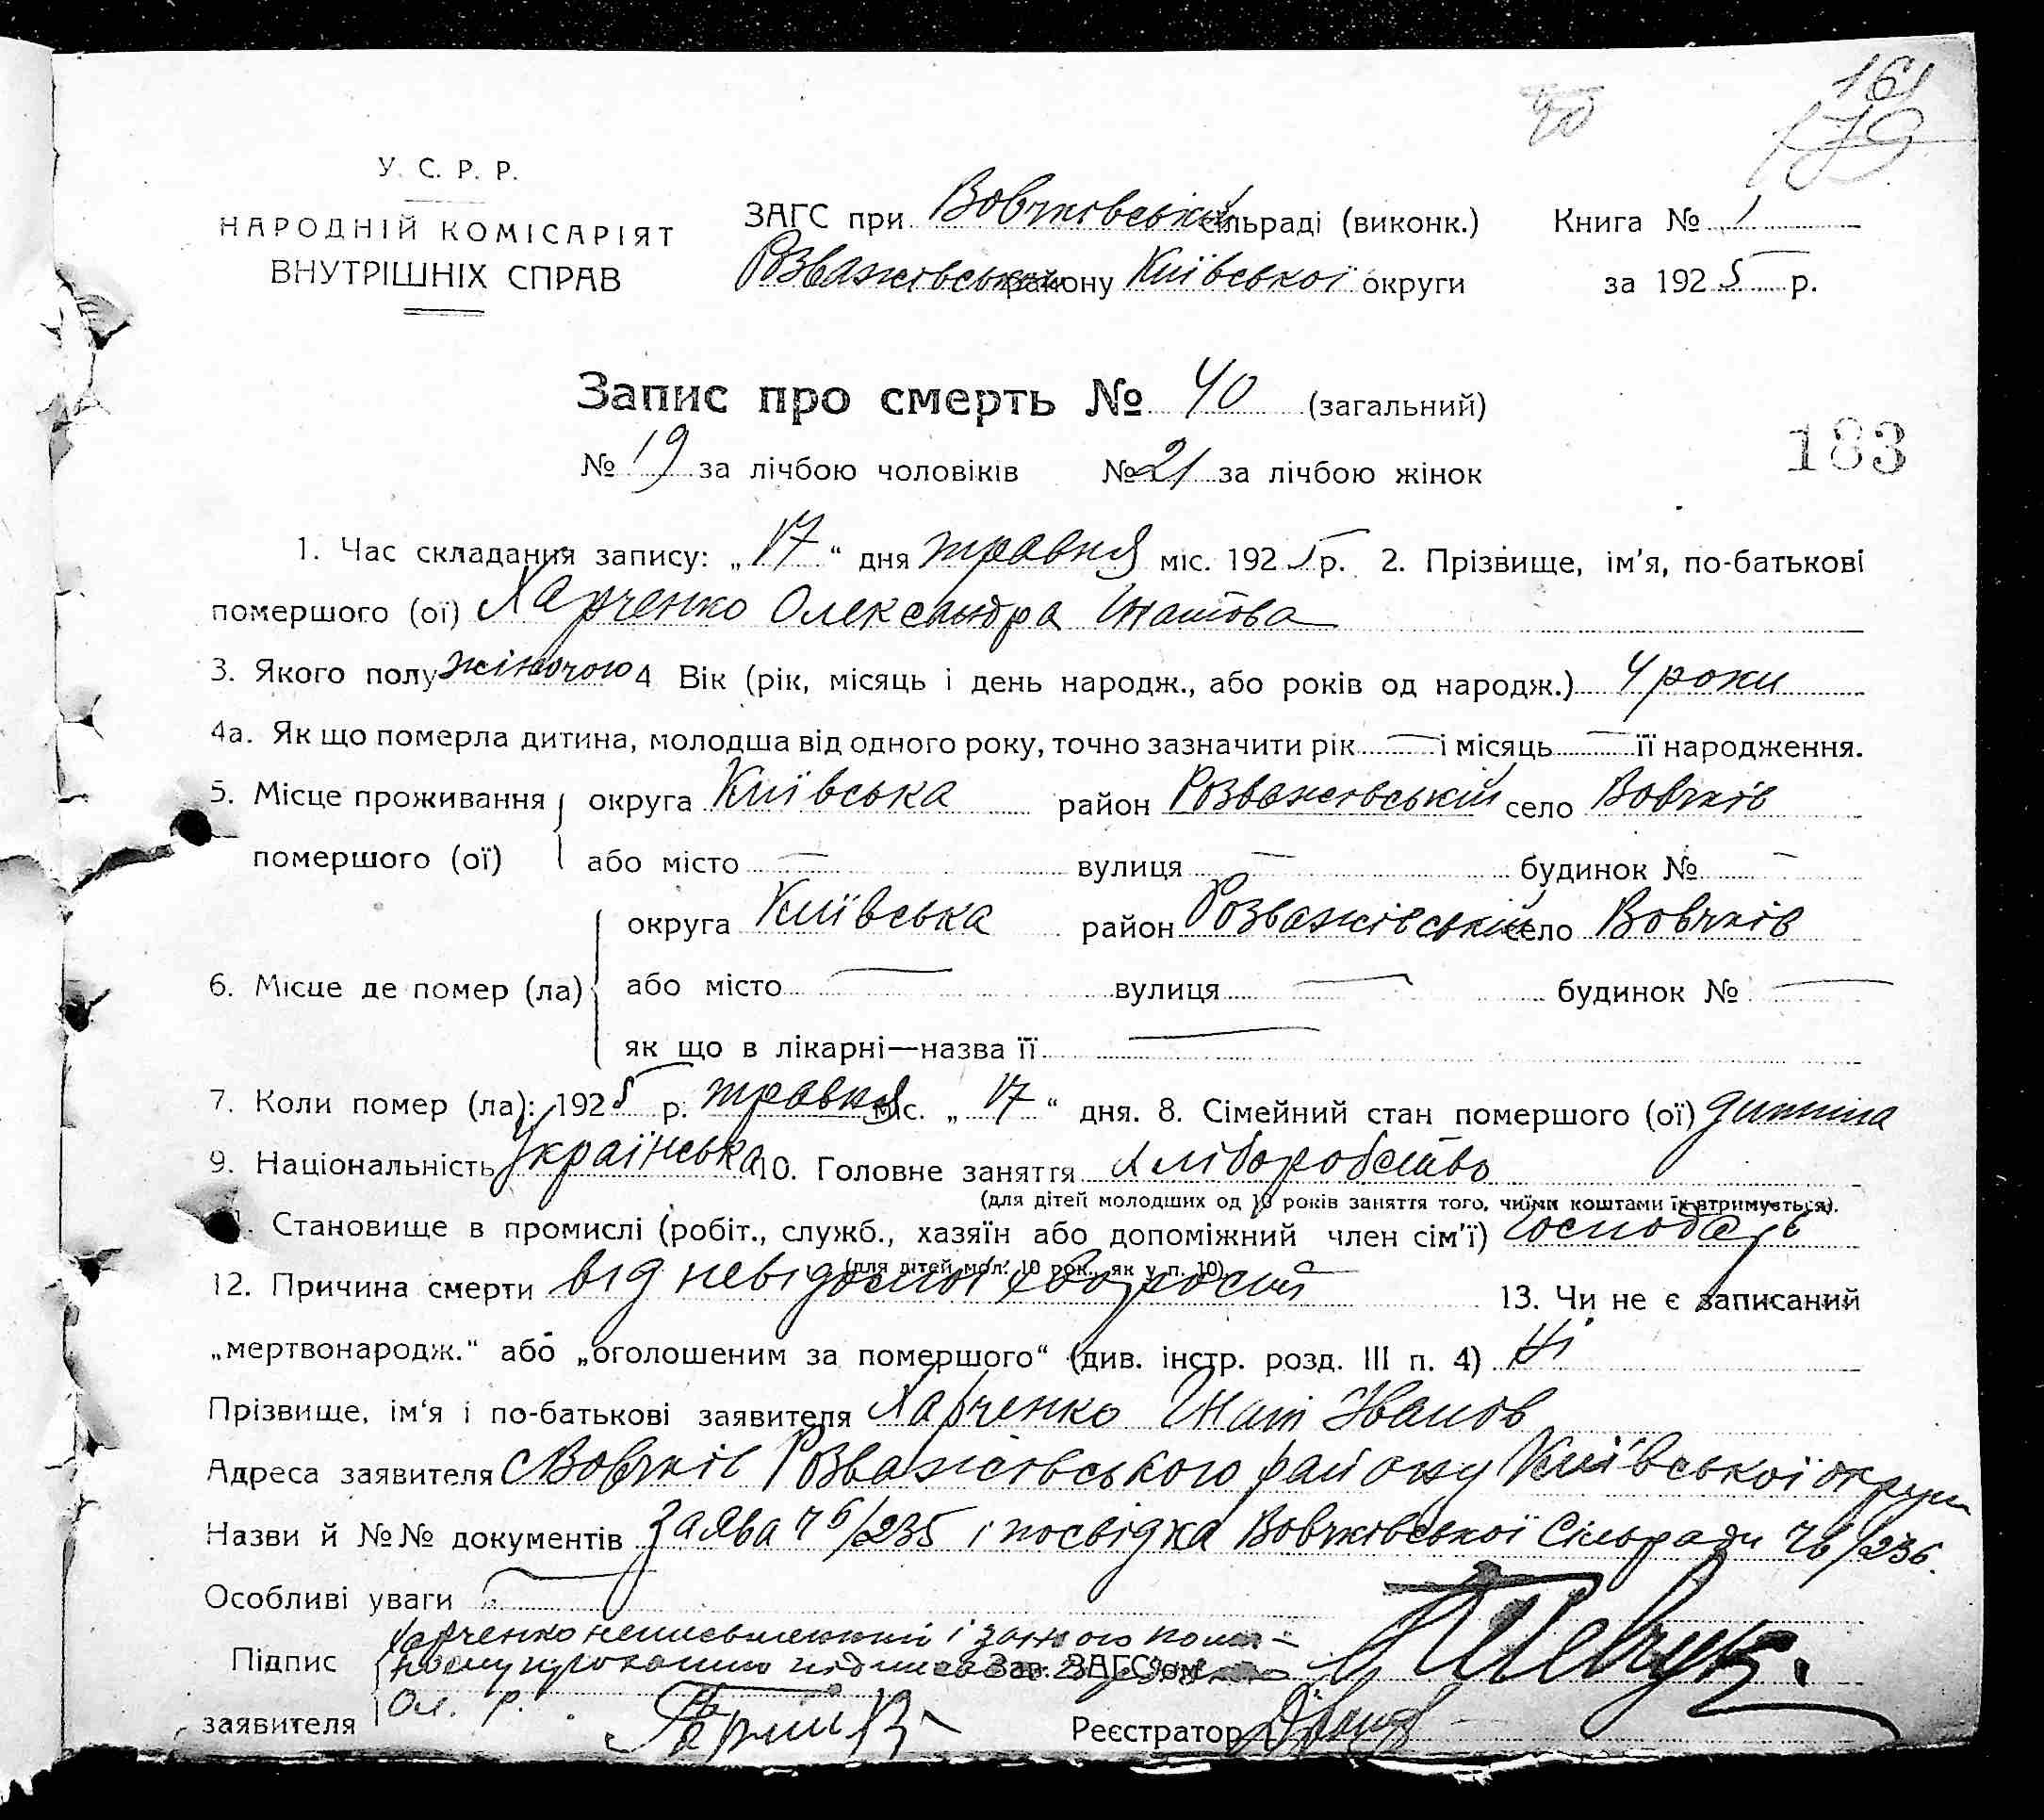 161
40
У. С. Р. Р.
НАРОДНІЙ КОМІСАРІЯТ
ВНУТРІШНІХ СПРАВ
ЗАГС при Вовчківській сільраді (виконк.) Книга № 1
Розважівського району Київської округи за 1925 р.
Запис про смерть № 40 (загальний)
183
№ 19 за лічбою чоловіків № 21 за лічбою жінок
1. Час складання запису: „17“ дня травня міс. 1925 р. 2. Прізвище, ім'я, по-батькові
помершого (ої) Харченко Олександра Гнатова
3. Якого полу жіночого 4 Вік (рік, місяць і день народж., або років од народж.) 4 роки
4а. Як що померла дитина, молодша від одного року, точно зазначити рік — і місяць — її народження.
5. Місце проживання округа Київська район Розважівський село Вовчків
помершого (ої) або місто — вулиця — будинок № —
округа Київська район Розважівський село Вовчків
6. Місце де помер (ла) або місто — вулиця — будинок № —
як що в лікарні—назва її —
7. Коли помер (ла): 1925 р. травня міс. „17“ дня. 8. Сімейний стан помершого (ої) дитина
9. Національність Українська 10. Головне заняття Хліборобство
(для дітей молодших од 10 років заняття того, чиїми коштами їх втримується).
11. Становище в промислі (робіт., служб., хазяїн або допоміжний член сім'ї) Господарь
(для дітей мол. 10 рок., як у п. 10)
12. Причина смерти від невідомої хворости 13. Чи не є записаний
„мертвонародж.“ або „оголошеним за помершого“ (див. інстр. розд. III п. 4) Ні
Прізвище, ім'я і по-батькові заявителя Харченко Гнат Іванов
Адреса заявителя с Вовчків Розважівського району Київської округи
Назви й №№ документів Заява ч 6/235 і посвідка Вовчківської Сільради ч 6/236.
Особливі уваги —
Харченко неписьменний і за його
Підпис Зав. ЗАГС'ом Шевчук.
заявителя Реєстратор